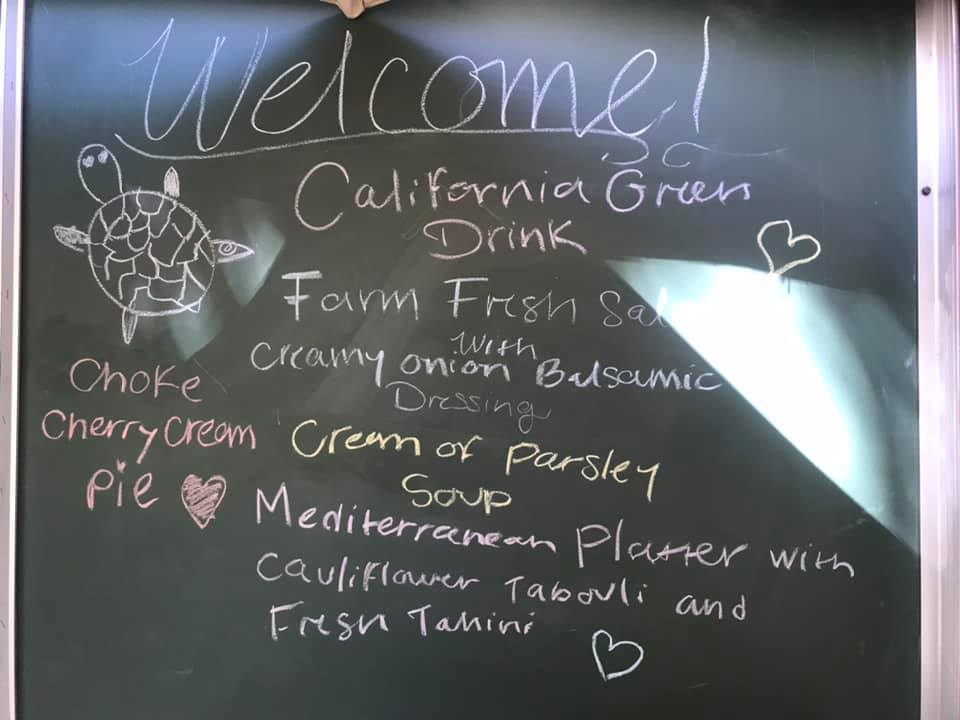 Welcome!
California Green
Drink
Farm Fresh
with
creamy onion Balsamic
Dressing
Choke
Cherry Cream
pie
Cream of parsley
Soup
Mediterranean Platter with
Cauliflower Tabouli and
Fresh Tahini